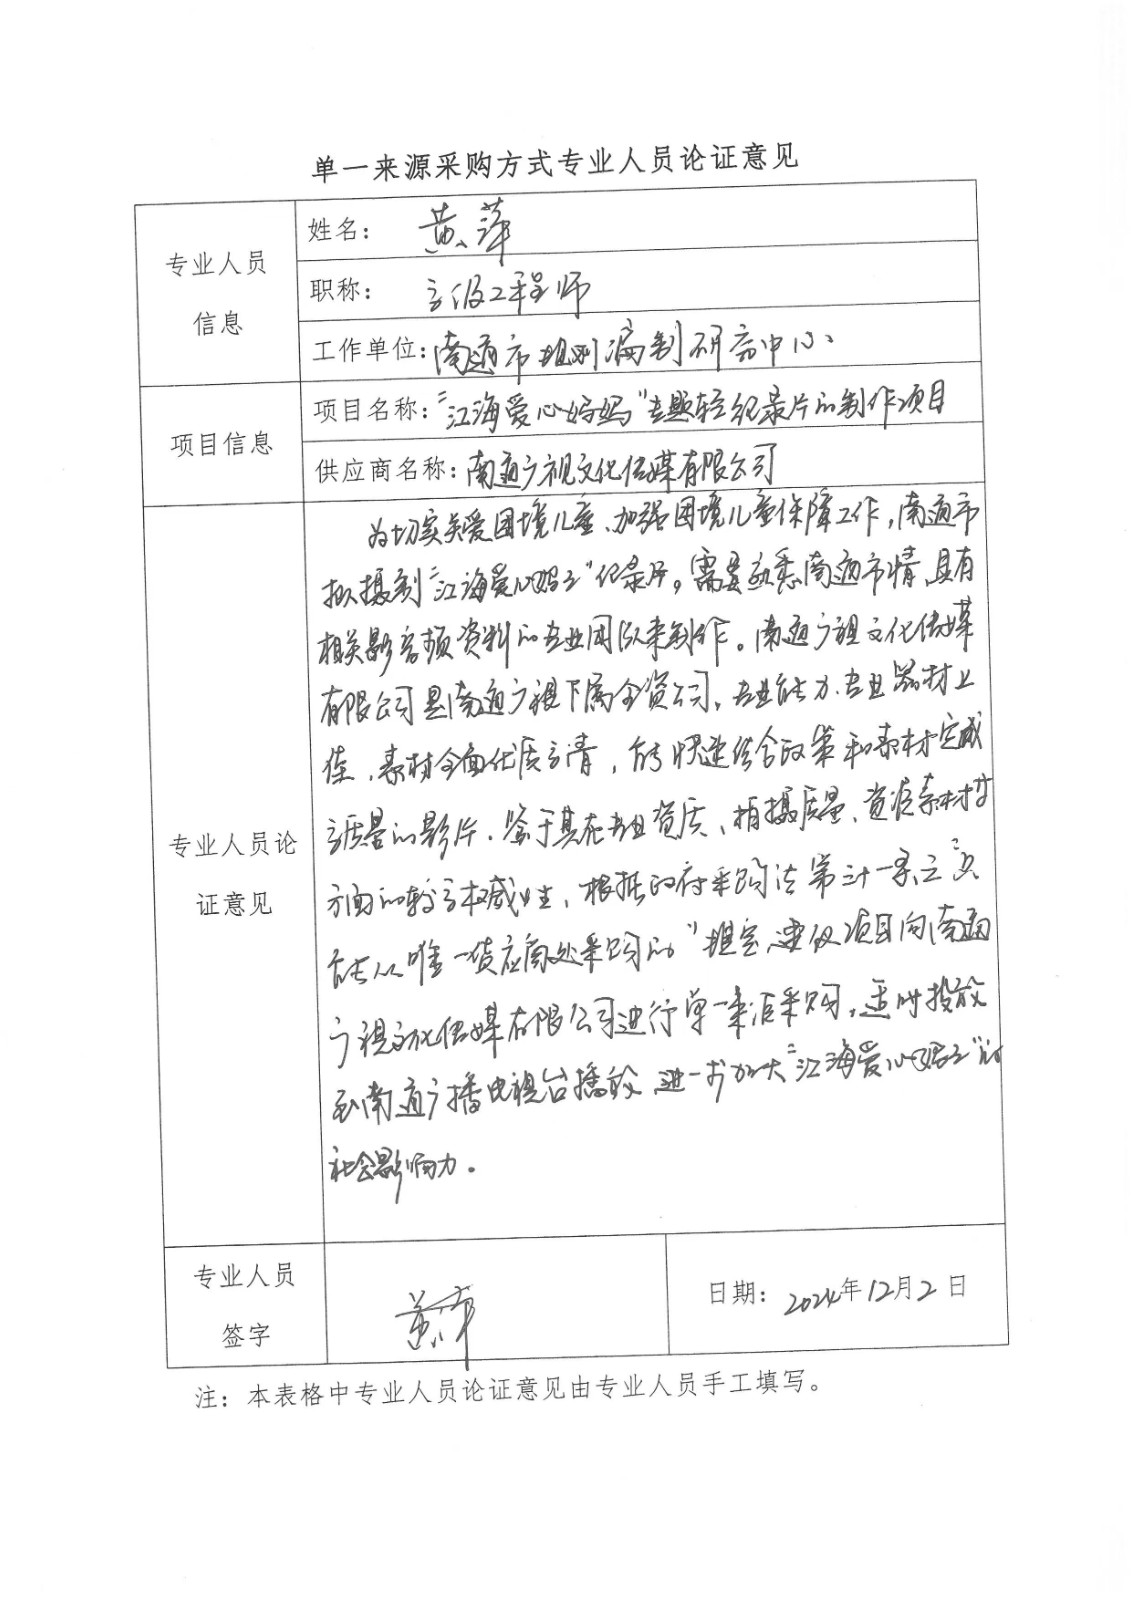 单一来源采购方式专业人员论证意见
专业人员
信息
姓名：黄萍
职称：高级工程师
工作单位：南通市规划编制研究中心
项目信息
项目名称："江海爱心妈妈"专题轻纪录片的制作项目
供应商名称：南通广视文化传媒有限公司
专业人员论
证意见
为切实关爱困境儿童、加强困境儿童保障工作，南通市
拟摄制"江海爱心妈妈"纪录片。需要熟悉南通市情、具有
相关影音频资料的专业团队来制作。南通广视文化传媒
有限公司是南通广视下属全资公司，专业能力、专业器材上
佳，素材全面优质高清，能快速结合政策和素材完成
高质量的影片。鉴于其在专业资质、拍摄质量、资源素材等
方面的较高权威性，根据政府采购法第三十一条之"只
能从唯一供应商处采购的"规定，建议项目向南通
广视文化传媒有限公司进行单一来源采购，适时投放
至南通广播电视台播放，进一步加大"江海爱心妈妈"的
社会影响力。
专业人员
签字
黄萍
日期：2024年12月2日
注：本表格中专业人员论证意见由专业人员手工填写。